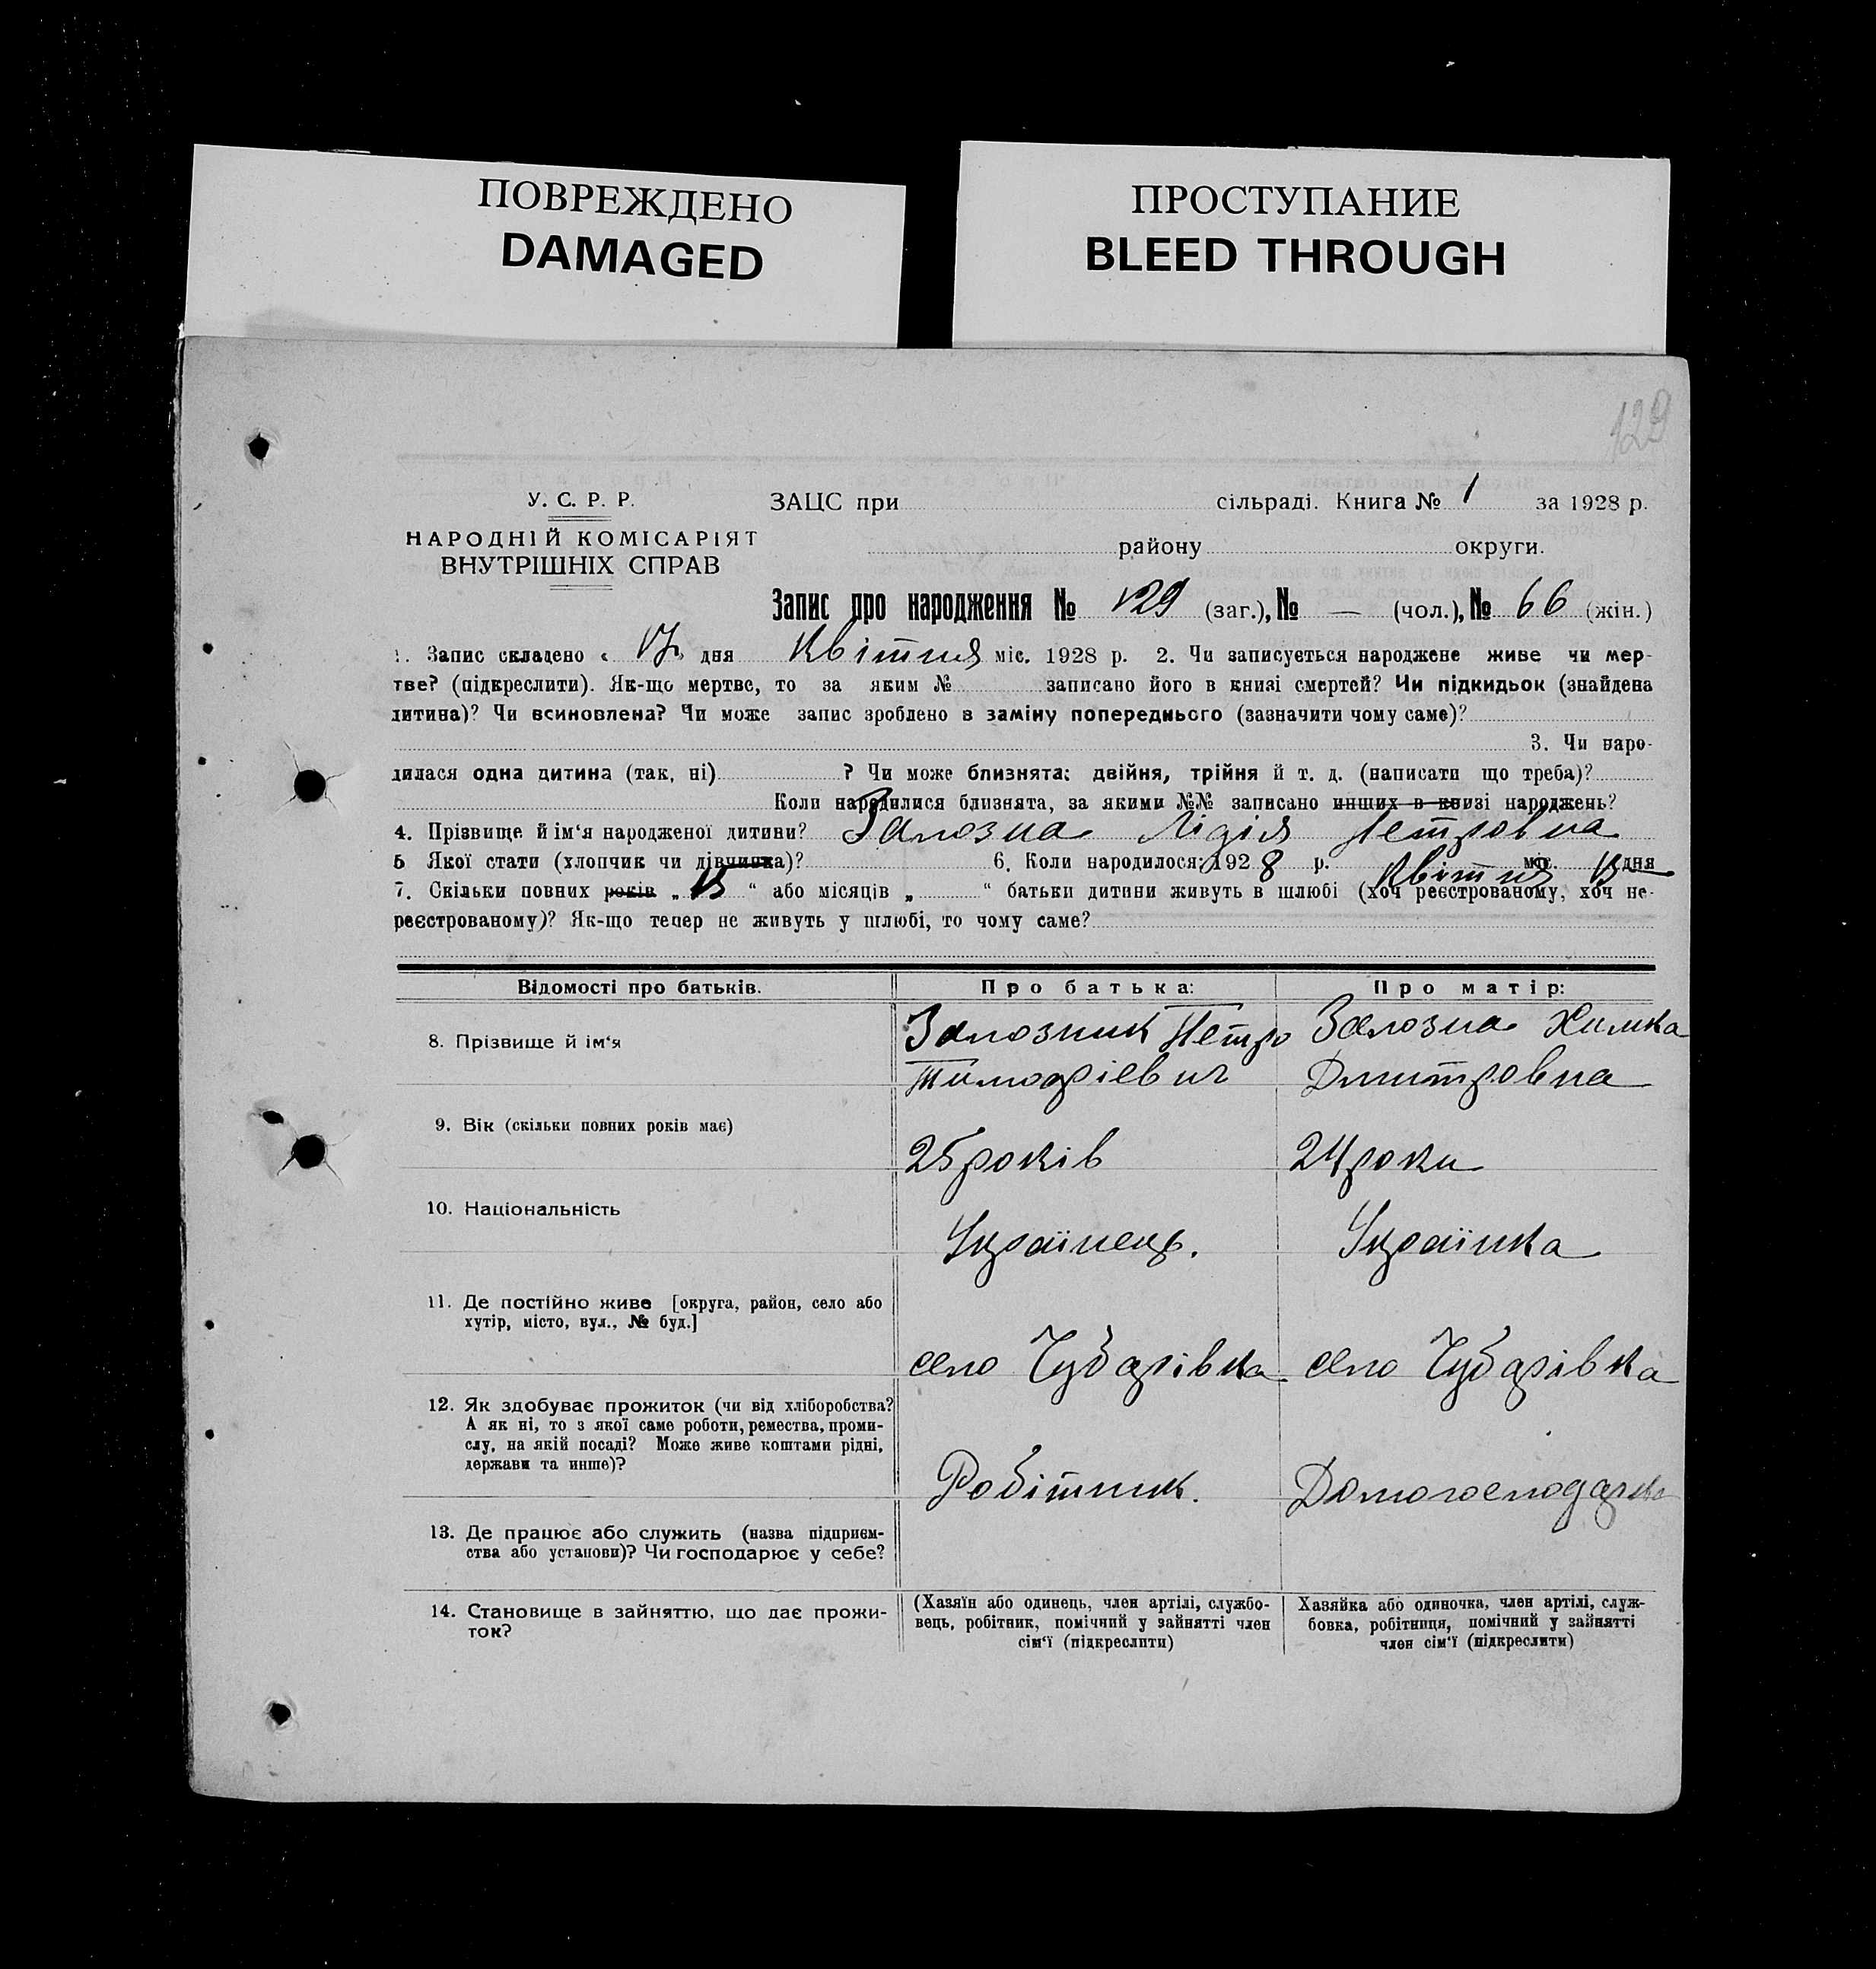 ПОВРЕЖДЕНО
DAMAGED
ПРОСТУПАНИЕ
BLEED THROUGH
129
У. С. Р. Р.
НАРОДНІЙ КОМІСАРІЯТ
ВНУТРІШНІХ СПРАВ
ЗАЦС при сільраді. Книга № 1 за 1928 р.
району округи.
Запис про народження № 129 (заг.), № — (чол.), № 66 (жін.)
1. Запис складено « 17 » дня Квітня міс. 1928 р. 2. Чи записується народжене живе чи мер-
тве? (підкреслити). Як-що мертве, то за яким № записано його в книзі смертей? Чи підкидьок (знайдена
дитина)? Чи всиновлена? Чи може запис зроблено в заміну попереднього (зазначити чому саме)?
3. Чи наро-
дилася одна дитина (так, ні) ? Чи може близнята: двійня, трійня й т. д. (написати що треба)?
Коли народилися близнята, за якими №№ записано инших в книзі народжень?
4. Прізвище й ім‘я народженої дитини? Залозна Лідія Петровна
5 Якої стати (хлопчик чи дівчинка)? 6. Коли народилося: 1928 р. Квітня міс. дня
7. Скільки повних років „ “ або місяців „ “ батьки дитини живуть в шлюбі (хоч реєстрованому, хоч не-
реєстрованому)? Як-що тепер не живуть у шлюбі, то чому саме?
Відомості про батьків. Про батька: Про матір:
8. Прізвище й ім‘я
Залозник Петро Залозна Химка
Тимофієвич Дмитровна
9. Вік (скільки повних років має)
25 років 24 роки
10. Національність
Українець. Українка
11. Де постійно живе [округа, район, село або
хутір, місто, вул., № буд.]
село Чубарівка село Чубарівка
12. Як здобуває прожиток (чи від хліборобства?
А як ні, то з якої саме роботи, ремества, проми-
слу, на якій посаді? Може живе коштами рідні,
держави та инше)?
Робітник. Домогосподарка
13. Де працює або служить (назва підприєм-
ства або установи)? Чи господарює у себе?
14. Становище в зайняттю, що дає прожи-
ток?
(Хазяїн або одинець, член артілі, службо-
вець, робітник, помічний у зайнятті член
сім‘ї (підкреслити)
Хазяйка або одиночка, член артілі, служ-
бовка, робітниця, помічний у зайнятті
член сім‘ї (підкреслити)